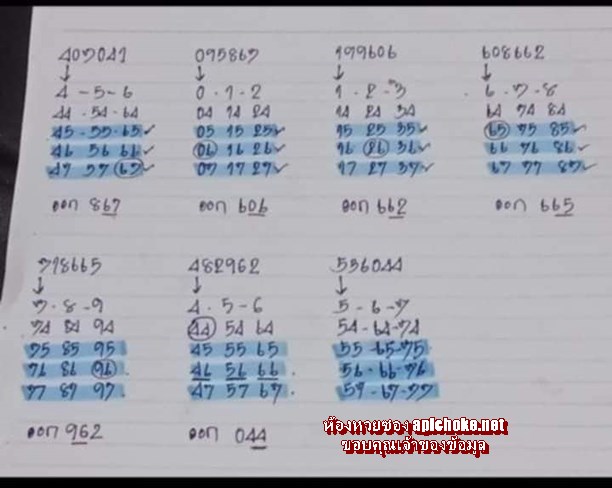 407041
↓
4-5-6
44-54-64
45-55-65✓
46 56 66✓
47 57 67✓
ออก 867
095867
↓
0-1-2
04 14 24
05 15 25✓
06 16 26✓
07 17 27✓
ออก 606
199606
↓
1-2-3
14 24 34
15 25 35✓
16 26 36✓
17 27 37✓
ออก 662
608662
↓
6-7-8
64 74 84
65 75 85✓
66 76 86✓
67 77 87✓
ออก 665
718665
↓
7-8-9
74 84 94
75 85 95
76 86 96
77 87 97
ออก 962
482962
↓
4-5-6
44 54 64
45 55 65
46 56 66
47 57 67
ออก 044
556044
↓
5-6-7
54-64-74
55-65-75
56-66-76
57-67-77
ห้องหวยซอง apichoke.net
ขอบคุณเจ้าของข้อมูล